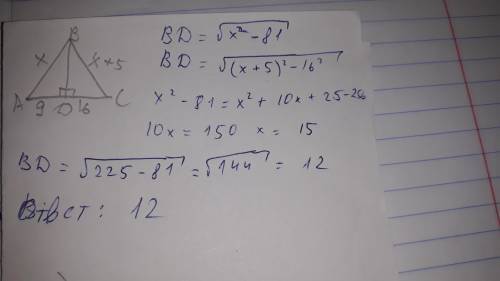 B
x
x+5
A 9 D 16 C
BD = √(x² - 81)
BD = √((x+5)² - 16²)
x² - 81 = x² + 10x + 25 - 256
10x = 150 x = 15
BD = √(225 - 81) = √144 = 12
Ответ: 12